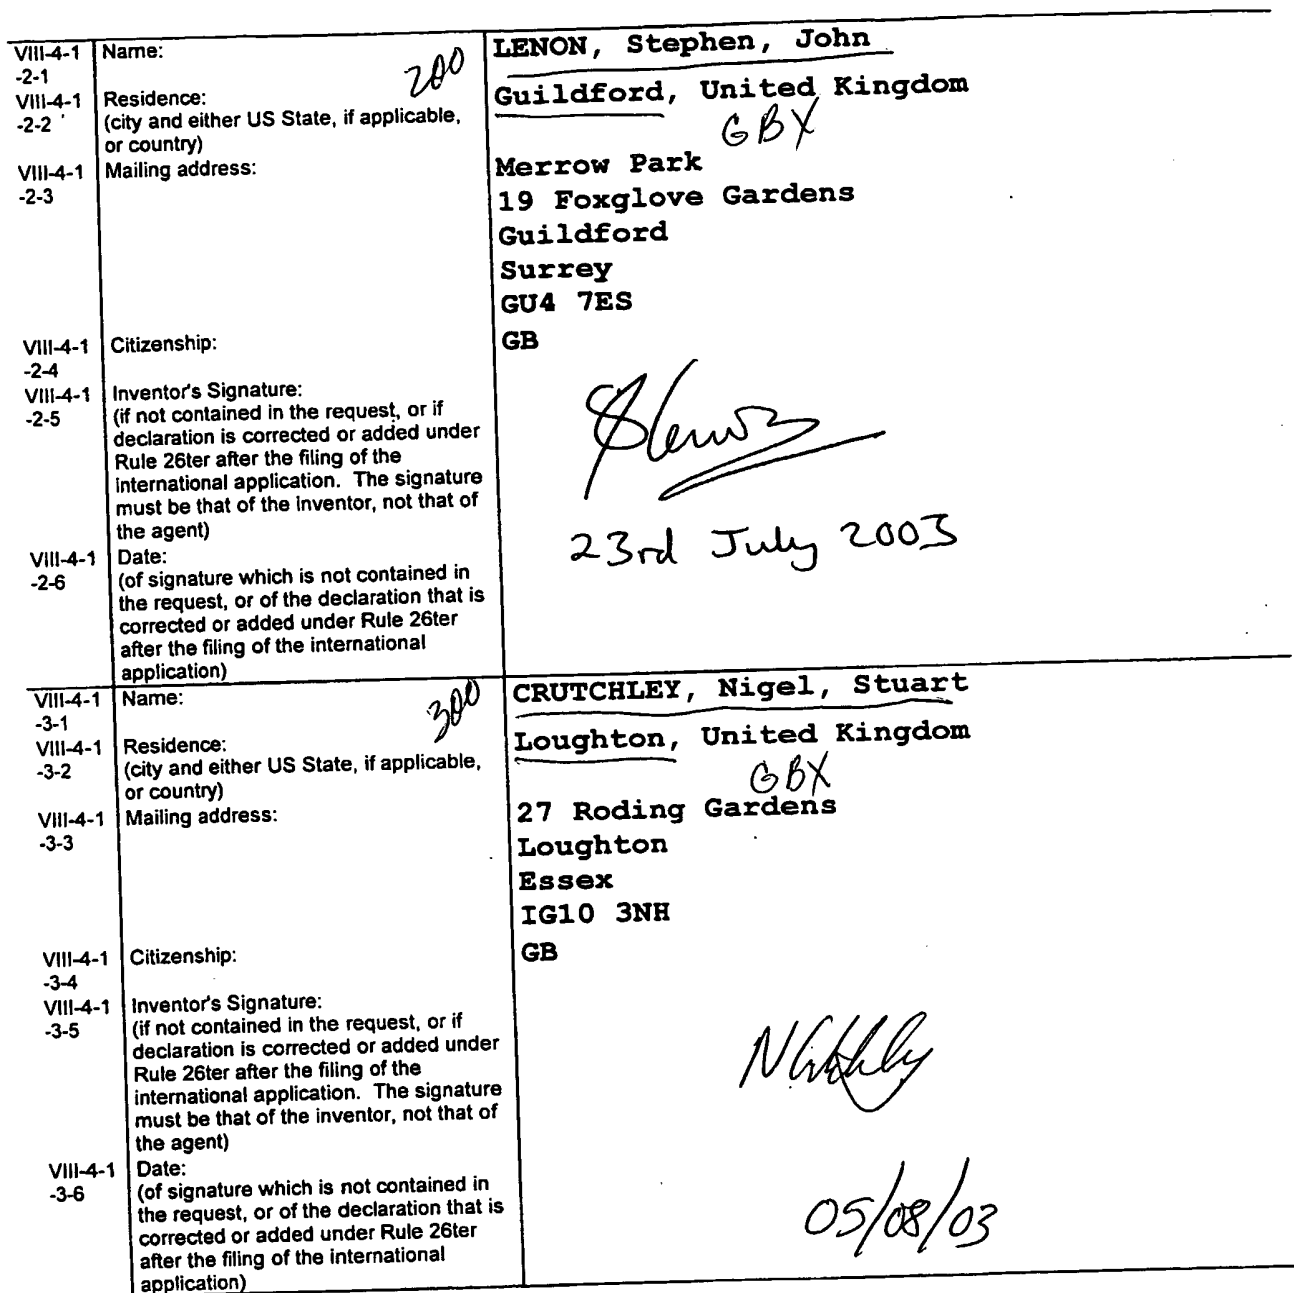 VIII-4-1 Name: 200 LENON, Stephen, John
-2-1
VIII-4-1 Residence: Guildford, United Kingdom
-2-2 (city and either US State, if applicable, GBX
or country)
VIII-4-1 Mailing address: Merrow Park
-2-3 19 Foxglove Gardens
Guildford
Surrey
GU4 7ES
VIII-4-1 Citizenship: GB
-2-4
VIII-4-1 Inventor's Signature:
-2-5 (if not contained in the request, or if
declaration is corrected or added under
Rule 26ter after the filing of the
international application. The signature
must be that of the inventor, not that of
the agent)
VIII-4-1 Date: 23rd July 2003
-2-6 (of signature which is not contained in
the request, or of the declaration that is
corrected or added under Rule 26ter
after the filing of the international
application)
VIII-4-1 Name: 300 CRUTCHLEY, Nigel, Stuart
-3-1
VIII-4-1 Residence: Loughton, United Kingdom
-3-2 (city and either US State, if applicable, GBX
or country)
VIII-4-1 Mailing address: 27 Roding Gardens
-3-3 Loughton
Essex
IG10 3NH
VIII-4-1 Citizenship: GB
-3-4
VIII-4-1 Inventor's Signature:
-3-5 (if not contained in the request, or if
declaration is corrected or added under
Rule 26ter after the filing of the
international application. The signature
must be that of the inventor, not that of
the agent)
VIII-4-1 Date: 05/08/03
-3-6 (of signature which is not contained in
the request, or of the declaration that is
corrected or added under Rule 26ter
after the filing of the international
application)